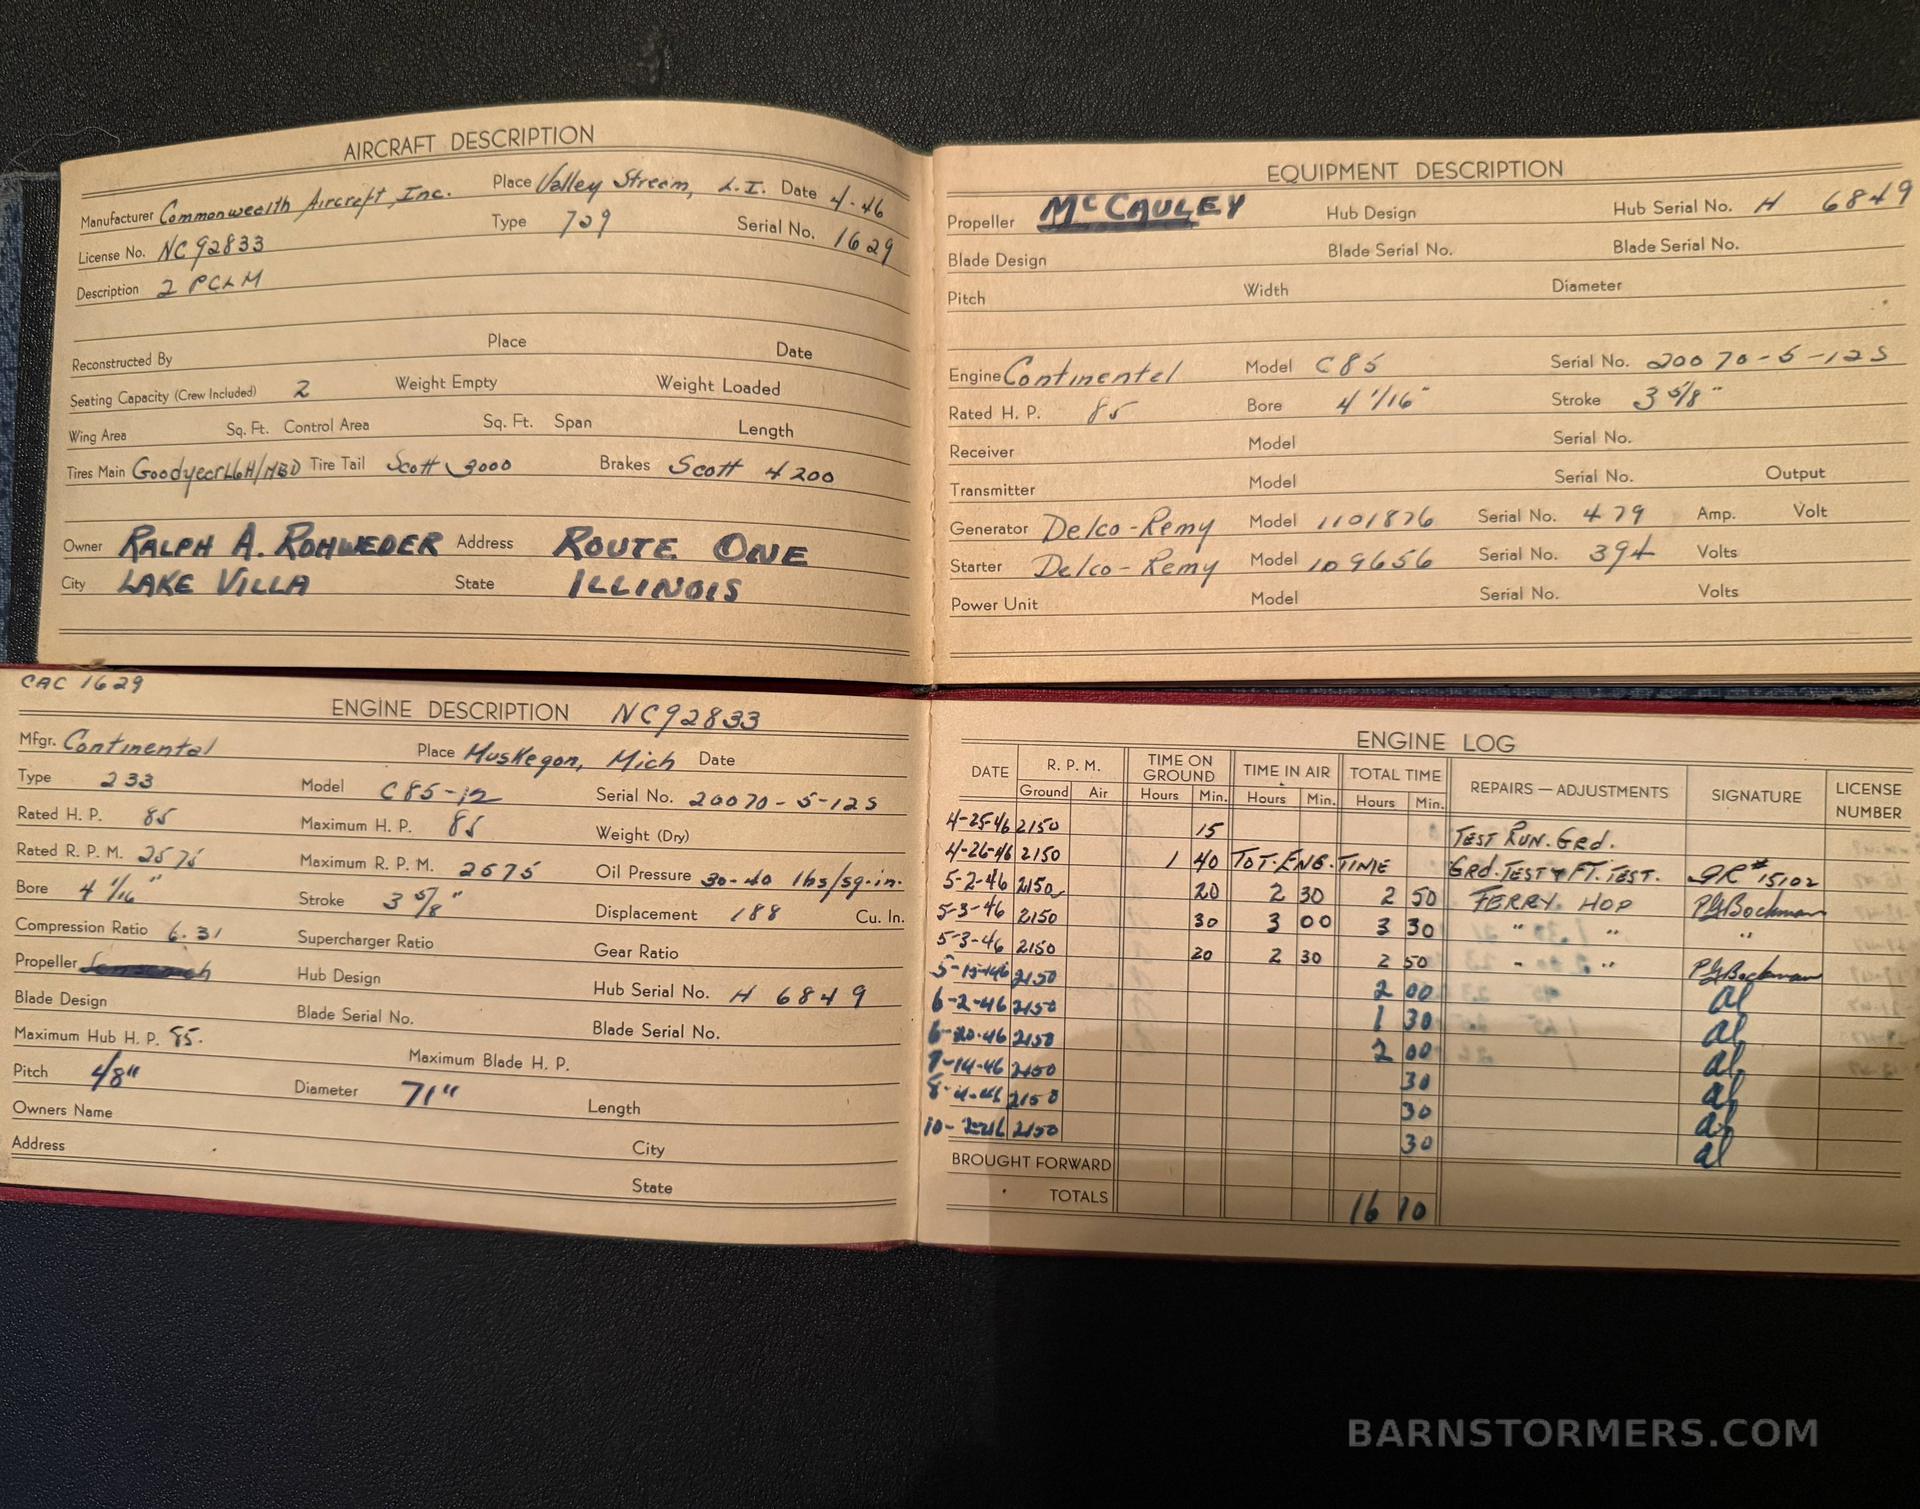 AIRCRAFT DESCRIPTION
Manufacturer Commonwealth Aircraft, Inc. Place Valley Stream, L.I. Date 4-46
License No. NC92833 Type 729 Serial No. 1629
Description 2 PCLM
Reconstructed By Place Date
Seating Capacity (Crew Included) 2 Weight Empty Weight Loaded
Wing Area Sq. Ft. Control Area Sq. Ft. Span Length
Tires Main Goodyear L6H/MBD Tire Tail Scott 3000 Brakes Scott 4200
Owner RALPH A. ROHWEDER Address ROUTE ONE
City LAKE VILLA State ILLINOIS
EQUIPMENT DESCRIPTION
Propeller McCAULEY Hub Design Hub Serial No. H 6849
Blade Design Blade Serial No. Blade Serial No.
Pitch Width Diameter
Engine Continental Model C85 Serial No. 20070-5-12S
Rated H. P. 85 Bore 4 1/16" Stroke 3 5/8"
Receiver Model Serial No.
Transmitter Model Serial No. Output
Generator Delco-Remy Model 1101876 Serial No. 479 Amp. Volt
Starter Delco-Remy Model 109656 Serial No. 394 Volts
Power Unit Model Serial No. Volts
CAC 1629
ENGINE DESCRIPTION NC92833
Mfgr. Continental Place Muskegon, Mich Date
Type 233 Model C85-12 Serial No. 20070-5-12S
Rated H. P. 85 Maximum H. P. 85 Weight (Dry)
Rated R. P. M. 2575 Maximum R. P. M. 2575 Oil Pressure 30-40 lbs/sq.in.
Bore 4 1/16" Stroke 3 5/8" Displacement 188 Cu. In.
Compression Ratio 6.31 Supercharger Ratio Gear Ratio
Propeller Hub Design Hub Serial No. H 6849
Blade Design Blade Serial No. Blade Serial No.
Maximum Hub H. P. 85. Maximum Blade H. P.
Pitch 48" Diameter 71" Length
Owners Name
Address City
State
ENGINE LOG
DATE R. P. M. TIME ON GROUND TIME IN AIR TOTAL TIME REPAIRS — ADJUSTMENTS SIGNATURE LICENSE NUMBER
Ground Air Hours Min. Hours Min. Hours Min.
4-25-46 2150 15 TEST RUN. GRD.
4-26-46 2150 1 40 TOT. ENG. TIME GRD. TEST & FT. TEST. #15102
5-2-46 2150 20 2 30 2 50 FERRY HOP
5-3-46 2150 30 3 00 3 30 " " "
5-3-46 2150 20 2 30 2 50 " "
5-15-46 2150 2 00 al
6-2-46 2150 1 30 al
6-20-46 2150 2 00 al
7-14-46 2150 30 al
2150 30 al
2150 30 al
BROUGHT FORWARD
TOTALS 16 10
BARNSTORMERS.COM